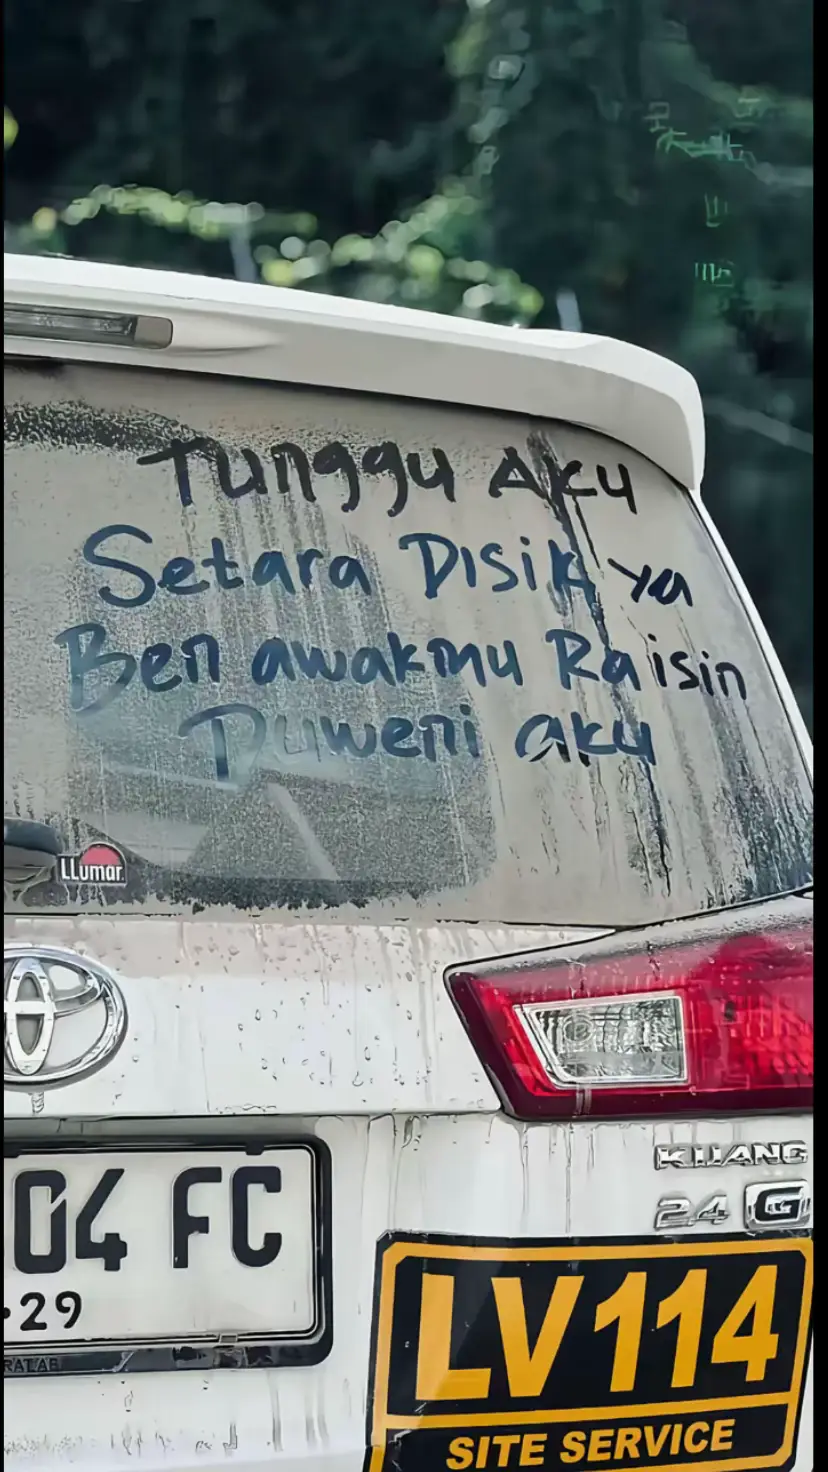 Tunggu Aku
Setara Disik ya
Ben awakmu Raisin
Duweni aku
LLumar
04 FC
29
KIJANG
2.4 G
LV114
SITE SERVICE